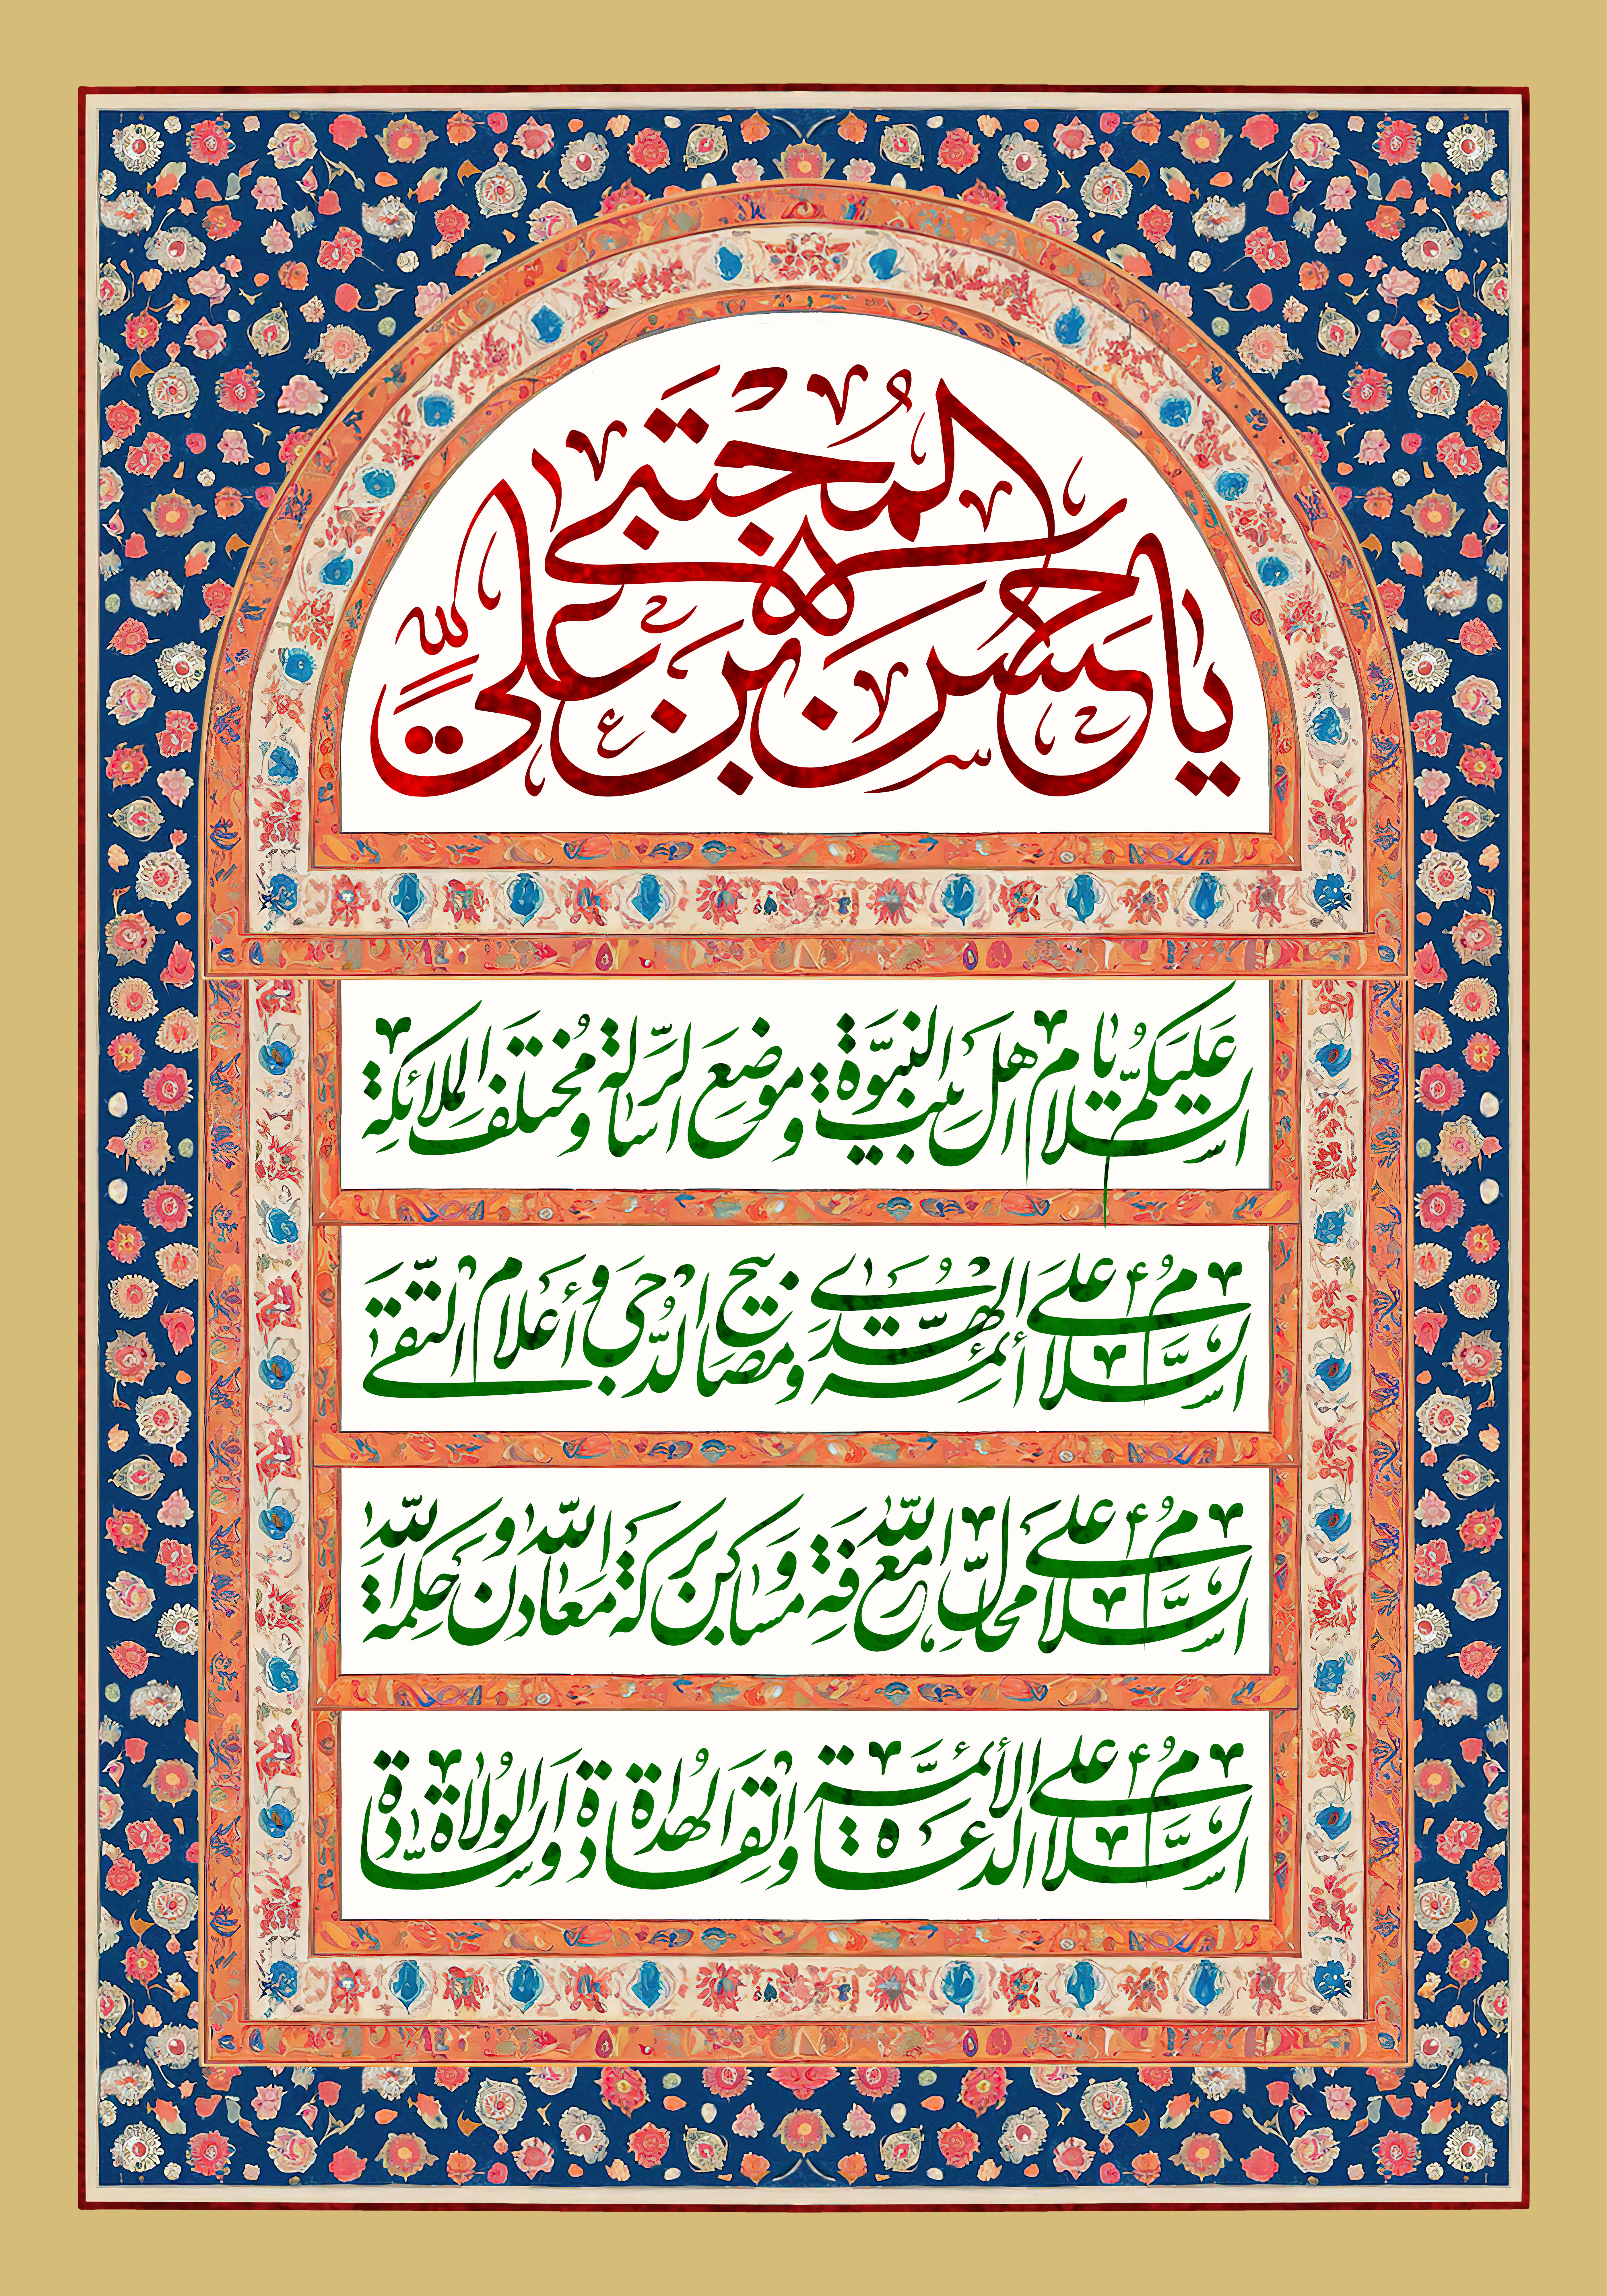 يا حسن بن علي المجتبى
السلام عليكم يا اهل بيت النبوة وموضع الرسالة ومختلف الملائكة
السلام على أئمة الهدى ومصابيح الدجى وأعلام التقى
السلام على محال معرفة الله ومساكن بركة الله ومعادن حكمة الله
السلام على الأئمة الدعاة والقادة الهداة والسادة الولاة